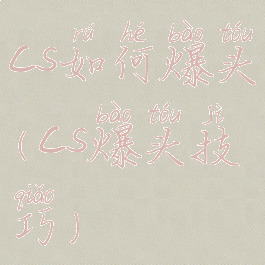 rú hé bào tóu
CS如何爆头
bào tóu jì
(CS爆头技
qiǎo
巧)